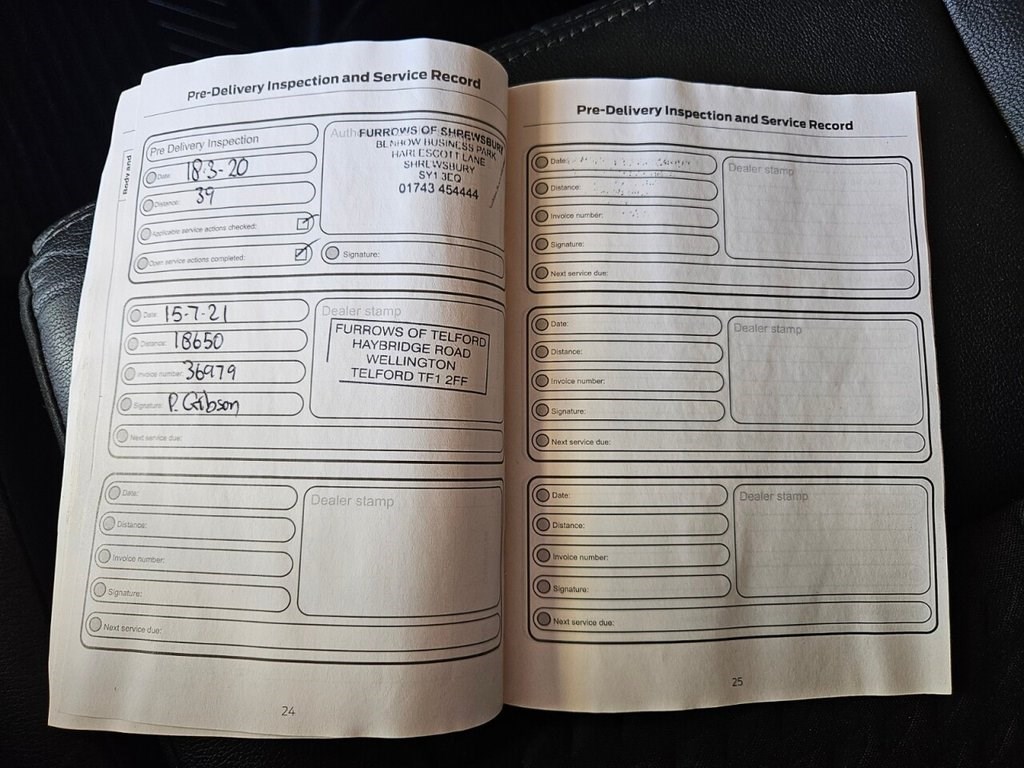 Pre-Delivery Inspection and Service Record
Body and
Pre Delivery Inspection
Date: 18-3-20
Distance: 39
Applicable service actions checked:
Open service actions completed:
Auth
FURROWS OF SHREWSBURY
BENBOW BUSINESS PARK
HARLESCOTT LANE
SHREWSBURY
SY1 3EQ
01743 454444
Signature:
Date: 15-7-21
Distance: 18650
Invoice number: 36979
Signature: P. Gibson
Next service due:
Dealer stamp
FURROWS OF TELFORD
HAYBRIDGE ROAD
WELLINGTON
TELFORD TF1 2FF
Date:
Distance:
Invoice number:
Signature:
Next service due:
Dealer stamp
24
Pre-Delivery Inspection and Service Record
Date:
Distance:
Invoice number:
Signature:
Next service due:
Dealer stamp
Date:
Distance:
Invoice number:
Signature:
Next service due:
Dealer stamp
Date:
Distance:
Invoice number:
Signature:
Next service due:
Dealer stamp
25